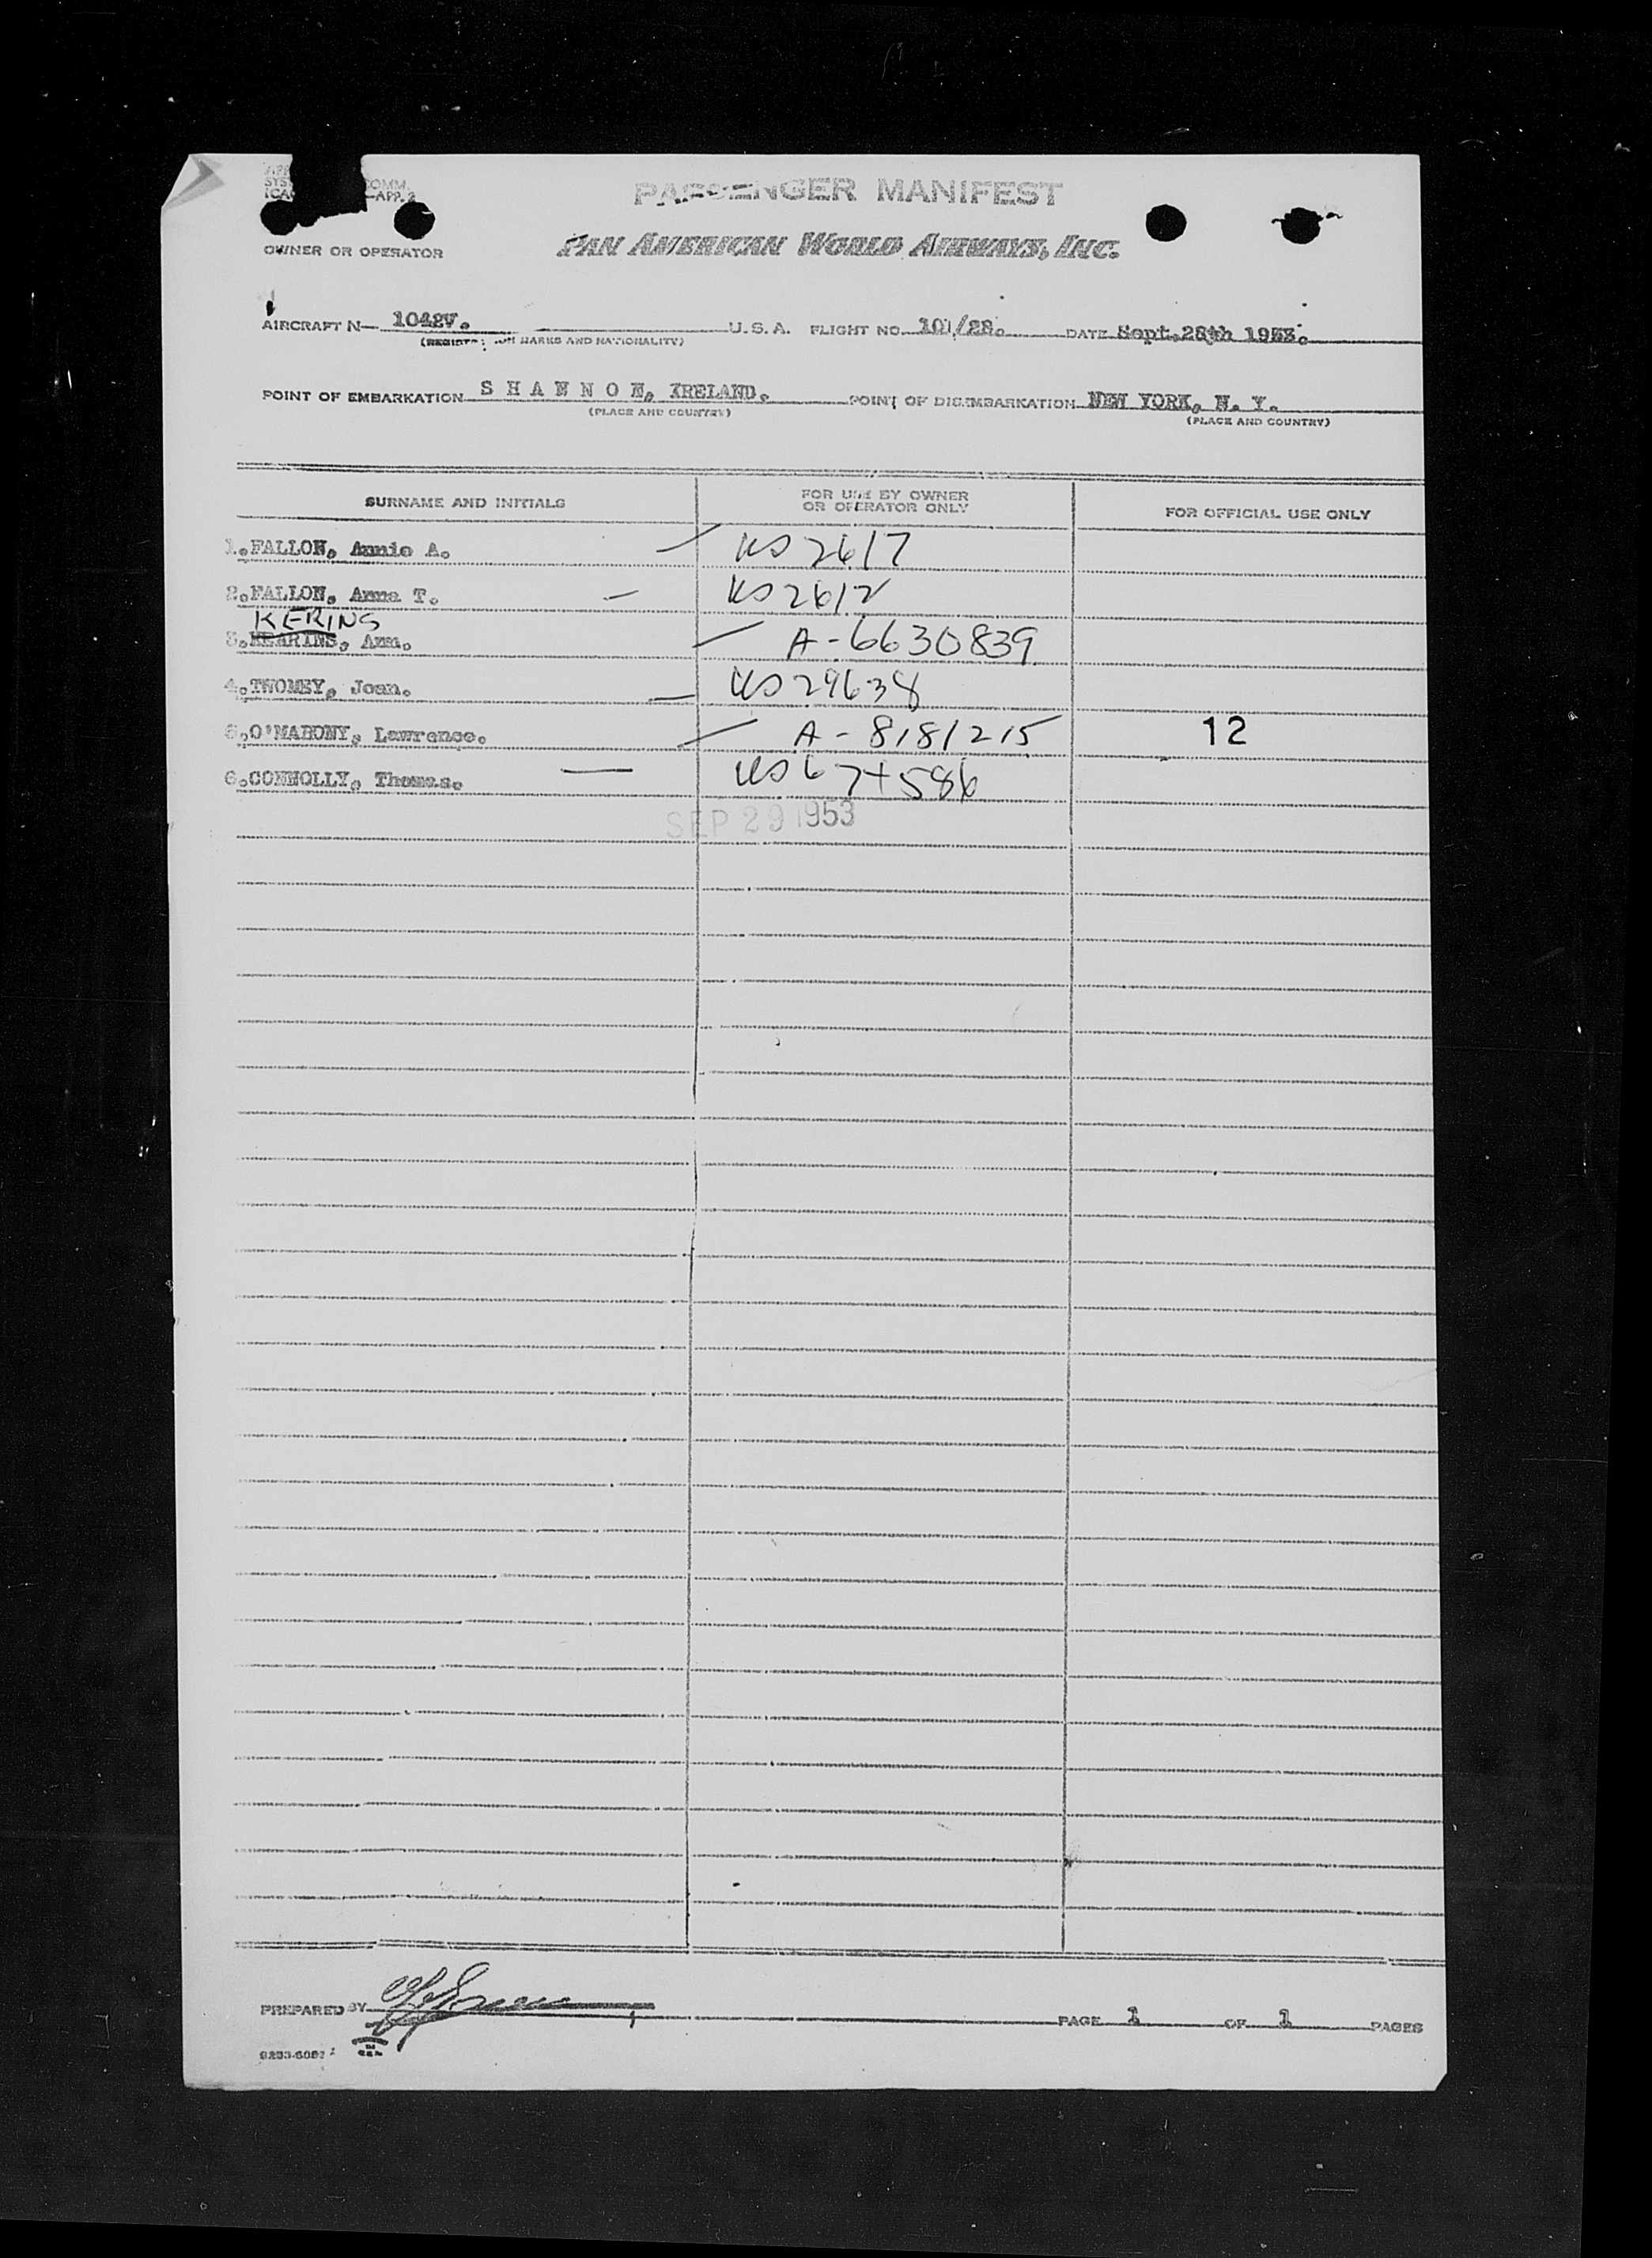 COMM.
APP. 2
PASSENGER MANIFEST
OWNER OR OPERATOR PAN AMERICAN WORLD AIRWAYS, INC.
AIRCRAFT N— 1042V. U.S.A. FLIGHT NO. 101/28. DATE Sept. 28th 1953.
MARKS AND NATIONALITY)
POINT OF EMBARKATION S H A N N O N, IRELAND. POINT OF DISEMBARKATION NEW YORK, N. Y.
(PLACE AND COUNTRY) (PLACE AND COUNTRY)
SURNAME AND INITIALS FOR USE BY OWNER OR OPERATOR ONLY FOR OFFICIAL USE ONLY
1.FALLON, Annie A. US 2617
2.FALLON, Anna T. US 2612
KERINS
3.KEARINS, Ann. A-6630839
4.TWOMEY, Joan. US 29638
5.O'MAHONY, Lawrence. A-8181215 12
6.CONNOLLY, Thomas.
SEP 29 1953
PREPARED BY PAGE 1 OF 1 PAGES